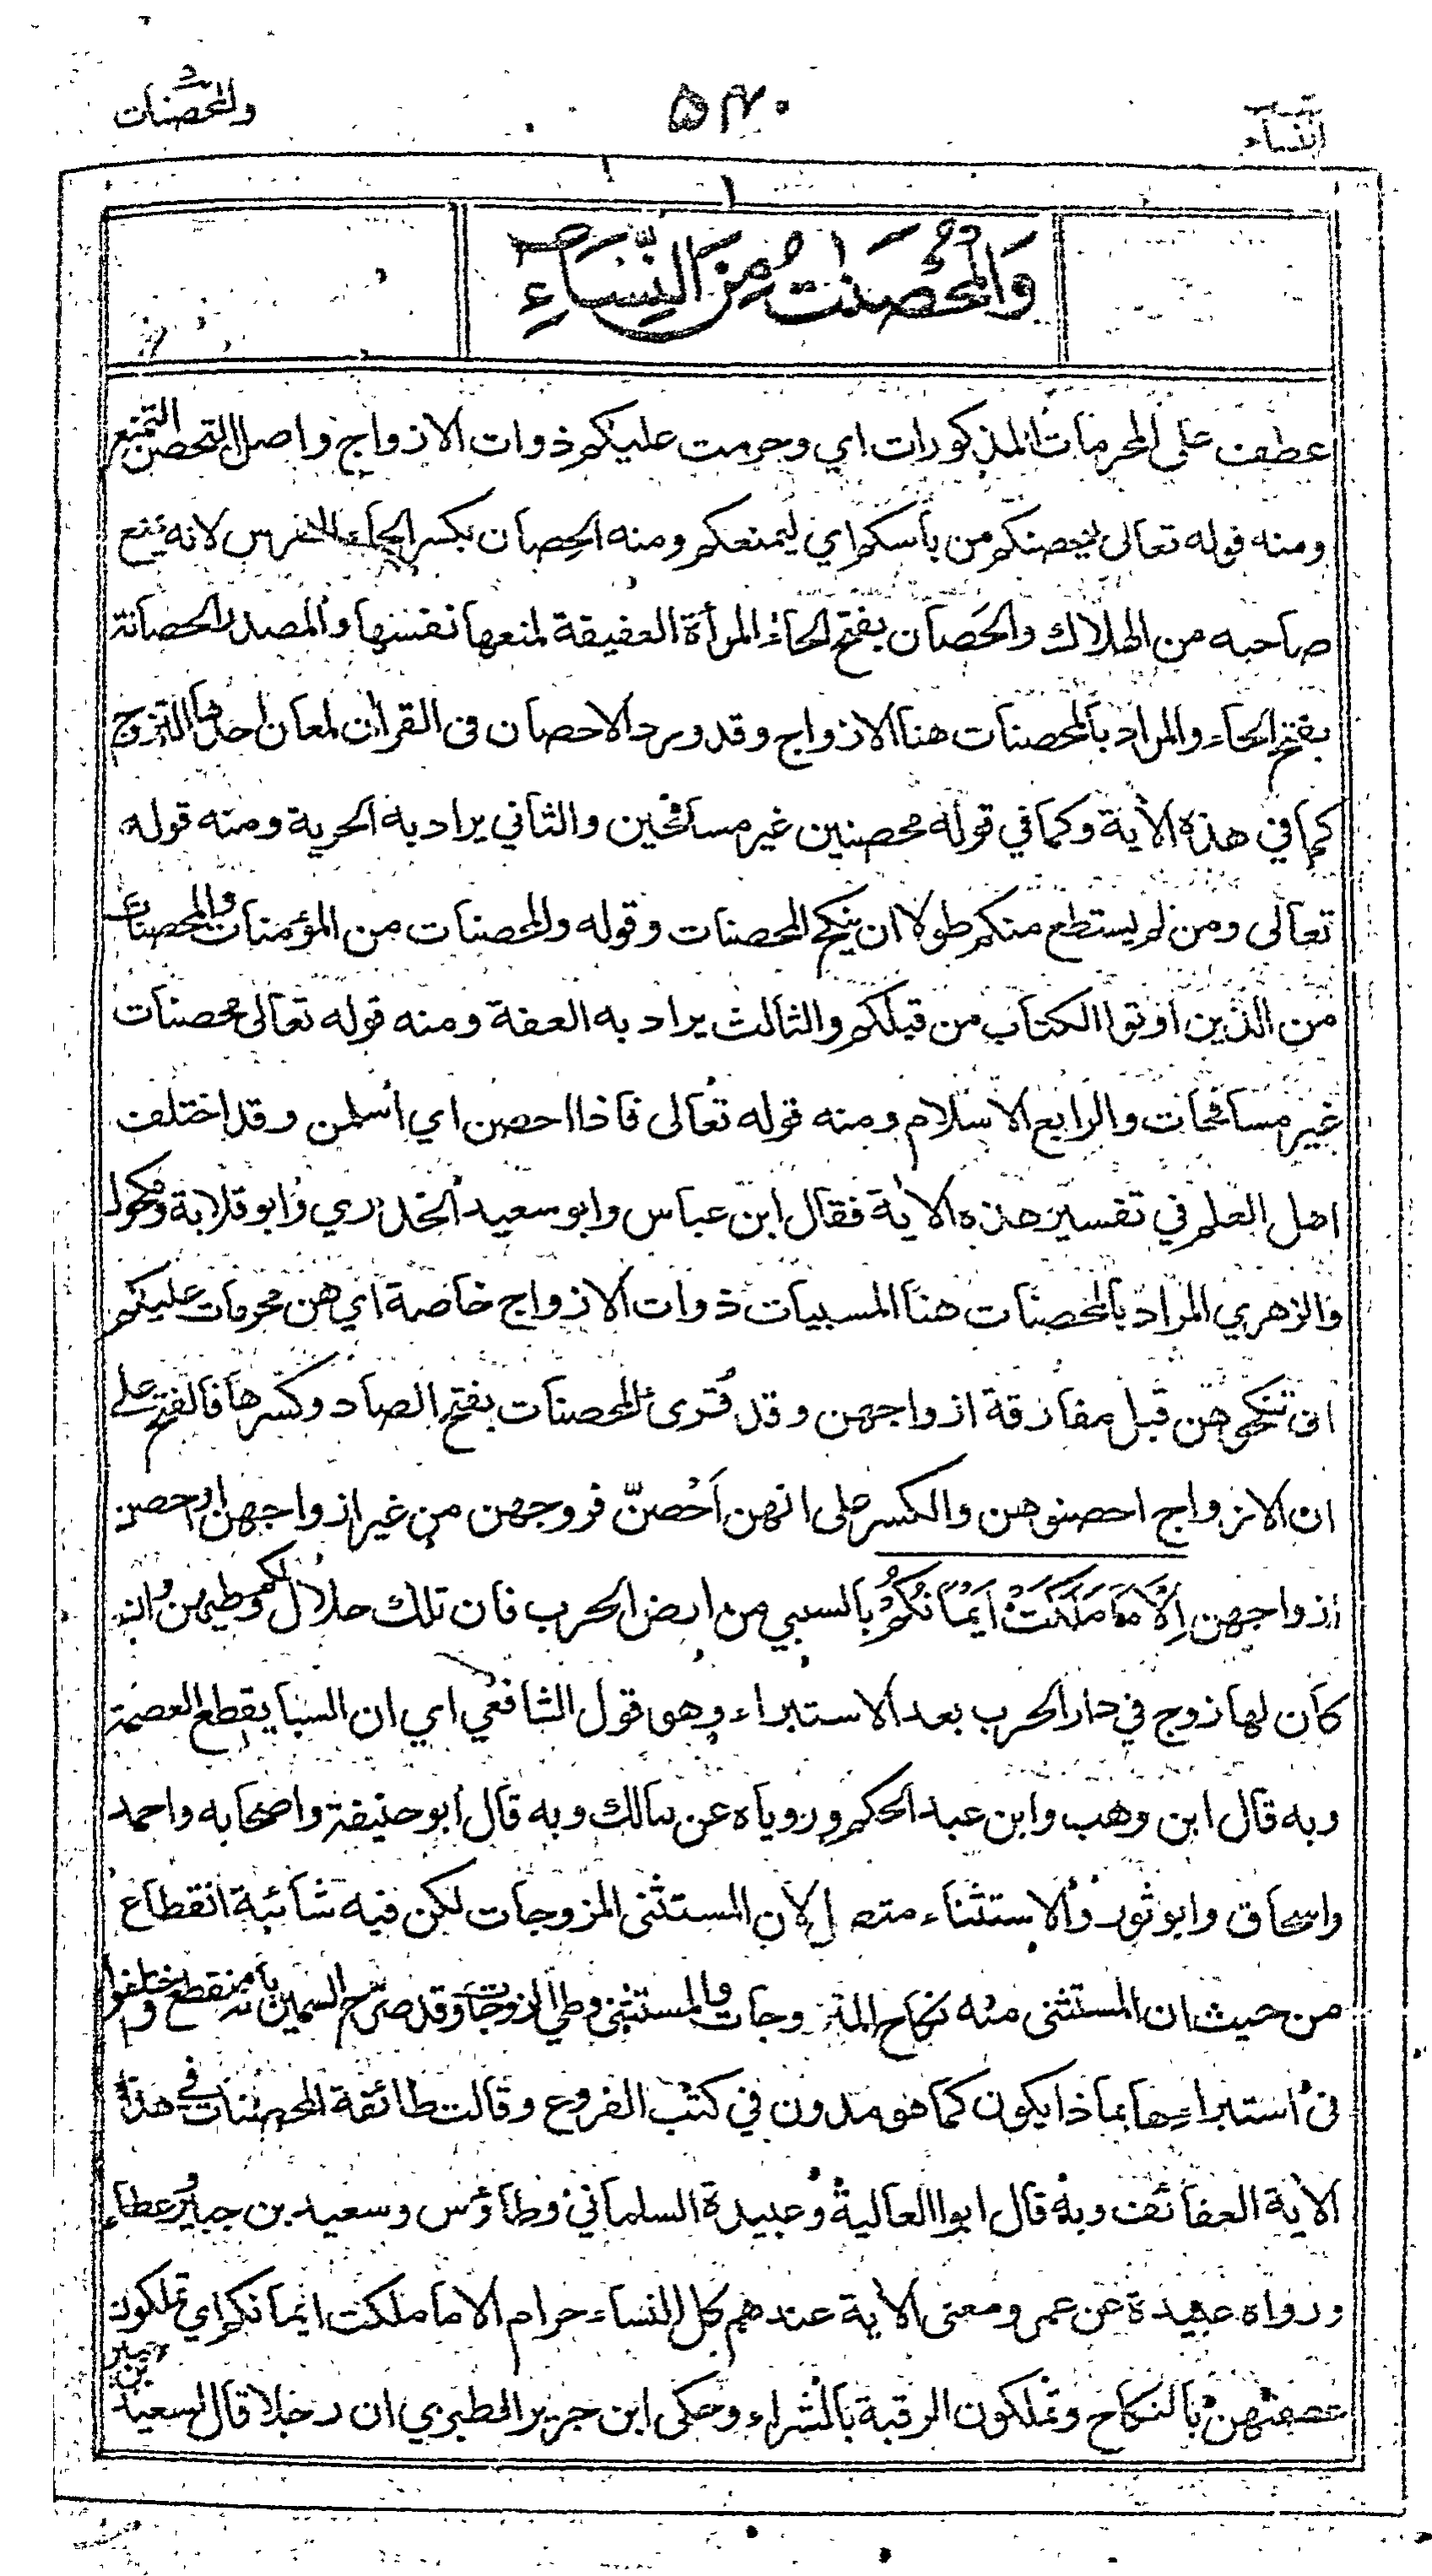 النساء
٥٣٠
والمحصنات
وَالْمُحْصَنٰتُ مِنَ النِّسَاءِ
عطف على المحرمات المذكورات اي وحرمت عليكم ذوات الازواج واصل التحصن التمنع
ومنه قوله تعالى لتحصنكم من بأسكم اي ليمنعكم ومنه الحِصان بكسر الحاء للفرس لانه يمنع
صاحبه من الهلاك والحَصان بفتح الحاء المرأة العفيفة لمنعها نفسها والمصدر الحصانة
بفتح الحاء والمراد بالمحصنات هنا الازواج وقد ورد الاحصان فى القرآن لمعان احدها التزوج
كما في هذه الآية وكما في قوله محصنين غير مسافحين والثاني يراد به الحرية ومنه قوله
تعالى ومن لم يستطع منكم طولا ان ينكح المحصنات وقوله والمحصنات من المؤمنات والمحصنات
من الذين اوتوا الكتاب من قبلكم والثالث يراد به العفة ومنه قوله تعالى محصنات
غير مسافحات والرابع الاسلام ومنه قوله تعالى فاذا احصن اي اسلمن وقد اختلف
اهل العلم في تفسير هذه الآية فقال ابن عباس وابو سعيد الخدري وابو قلابة ومكحول
والزهري المراد بالمحصنات هنا المسبيات ذوات الازواج خاصة اي هن محرمات عليكم
ان تنكحوهن قبل مفارقة ازواجهن وقد قُرئ المحصنات بفتح الصاد وكسرها فالفتح على
ان الازواج احصنوهن والكسر على انهن اَحْصَنّ فروجهن من غير ازواجهن او احصن
ازواجهن اِلَّا مَا مَلَكَتْ اَيْمَانُكُمْ بالسبي من ارض الحرب فان تلك حلال لكم وطيهن وان
كان لها زوج في دار الحرب بعد الاستبراء وهو قول الشافعي اي ان السبا يقطع العصمة
وبه قال ابن وهب وابن عبد الحكم وروياه عن مالك وبه قال ابو حنيفة واصحابه واحمد
واسحاق وابو ثور والاستثناء متصل لان المستثنى المزوجات لكن فيه شائبة انقطاع
من حيث ان المستثنى منه نكاح المتزوجات والمستثنى وطي الزوجات وقد صرح السمين بانه منقطع واختلفوا
فى استبرائها بماذا يكون كما هو مدون في كتب الفروع وقالت طائفة المحصنات في هذه
الآية العفائف وبه قال ابو العالية وعبيدة السلماني وطاؤس وسعيد بن جبير وعطاء
ورواه عبيدة عن عمر ومعنى الآية عندهم كل النساء حرام الا ما ملكت ايمانكم اي تملكون
عصمتهن بالنكاح وتملكون الرقبة بالشراء وحكى ابن جرير الطبري ان رجلا قال لسعيد بن جبير